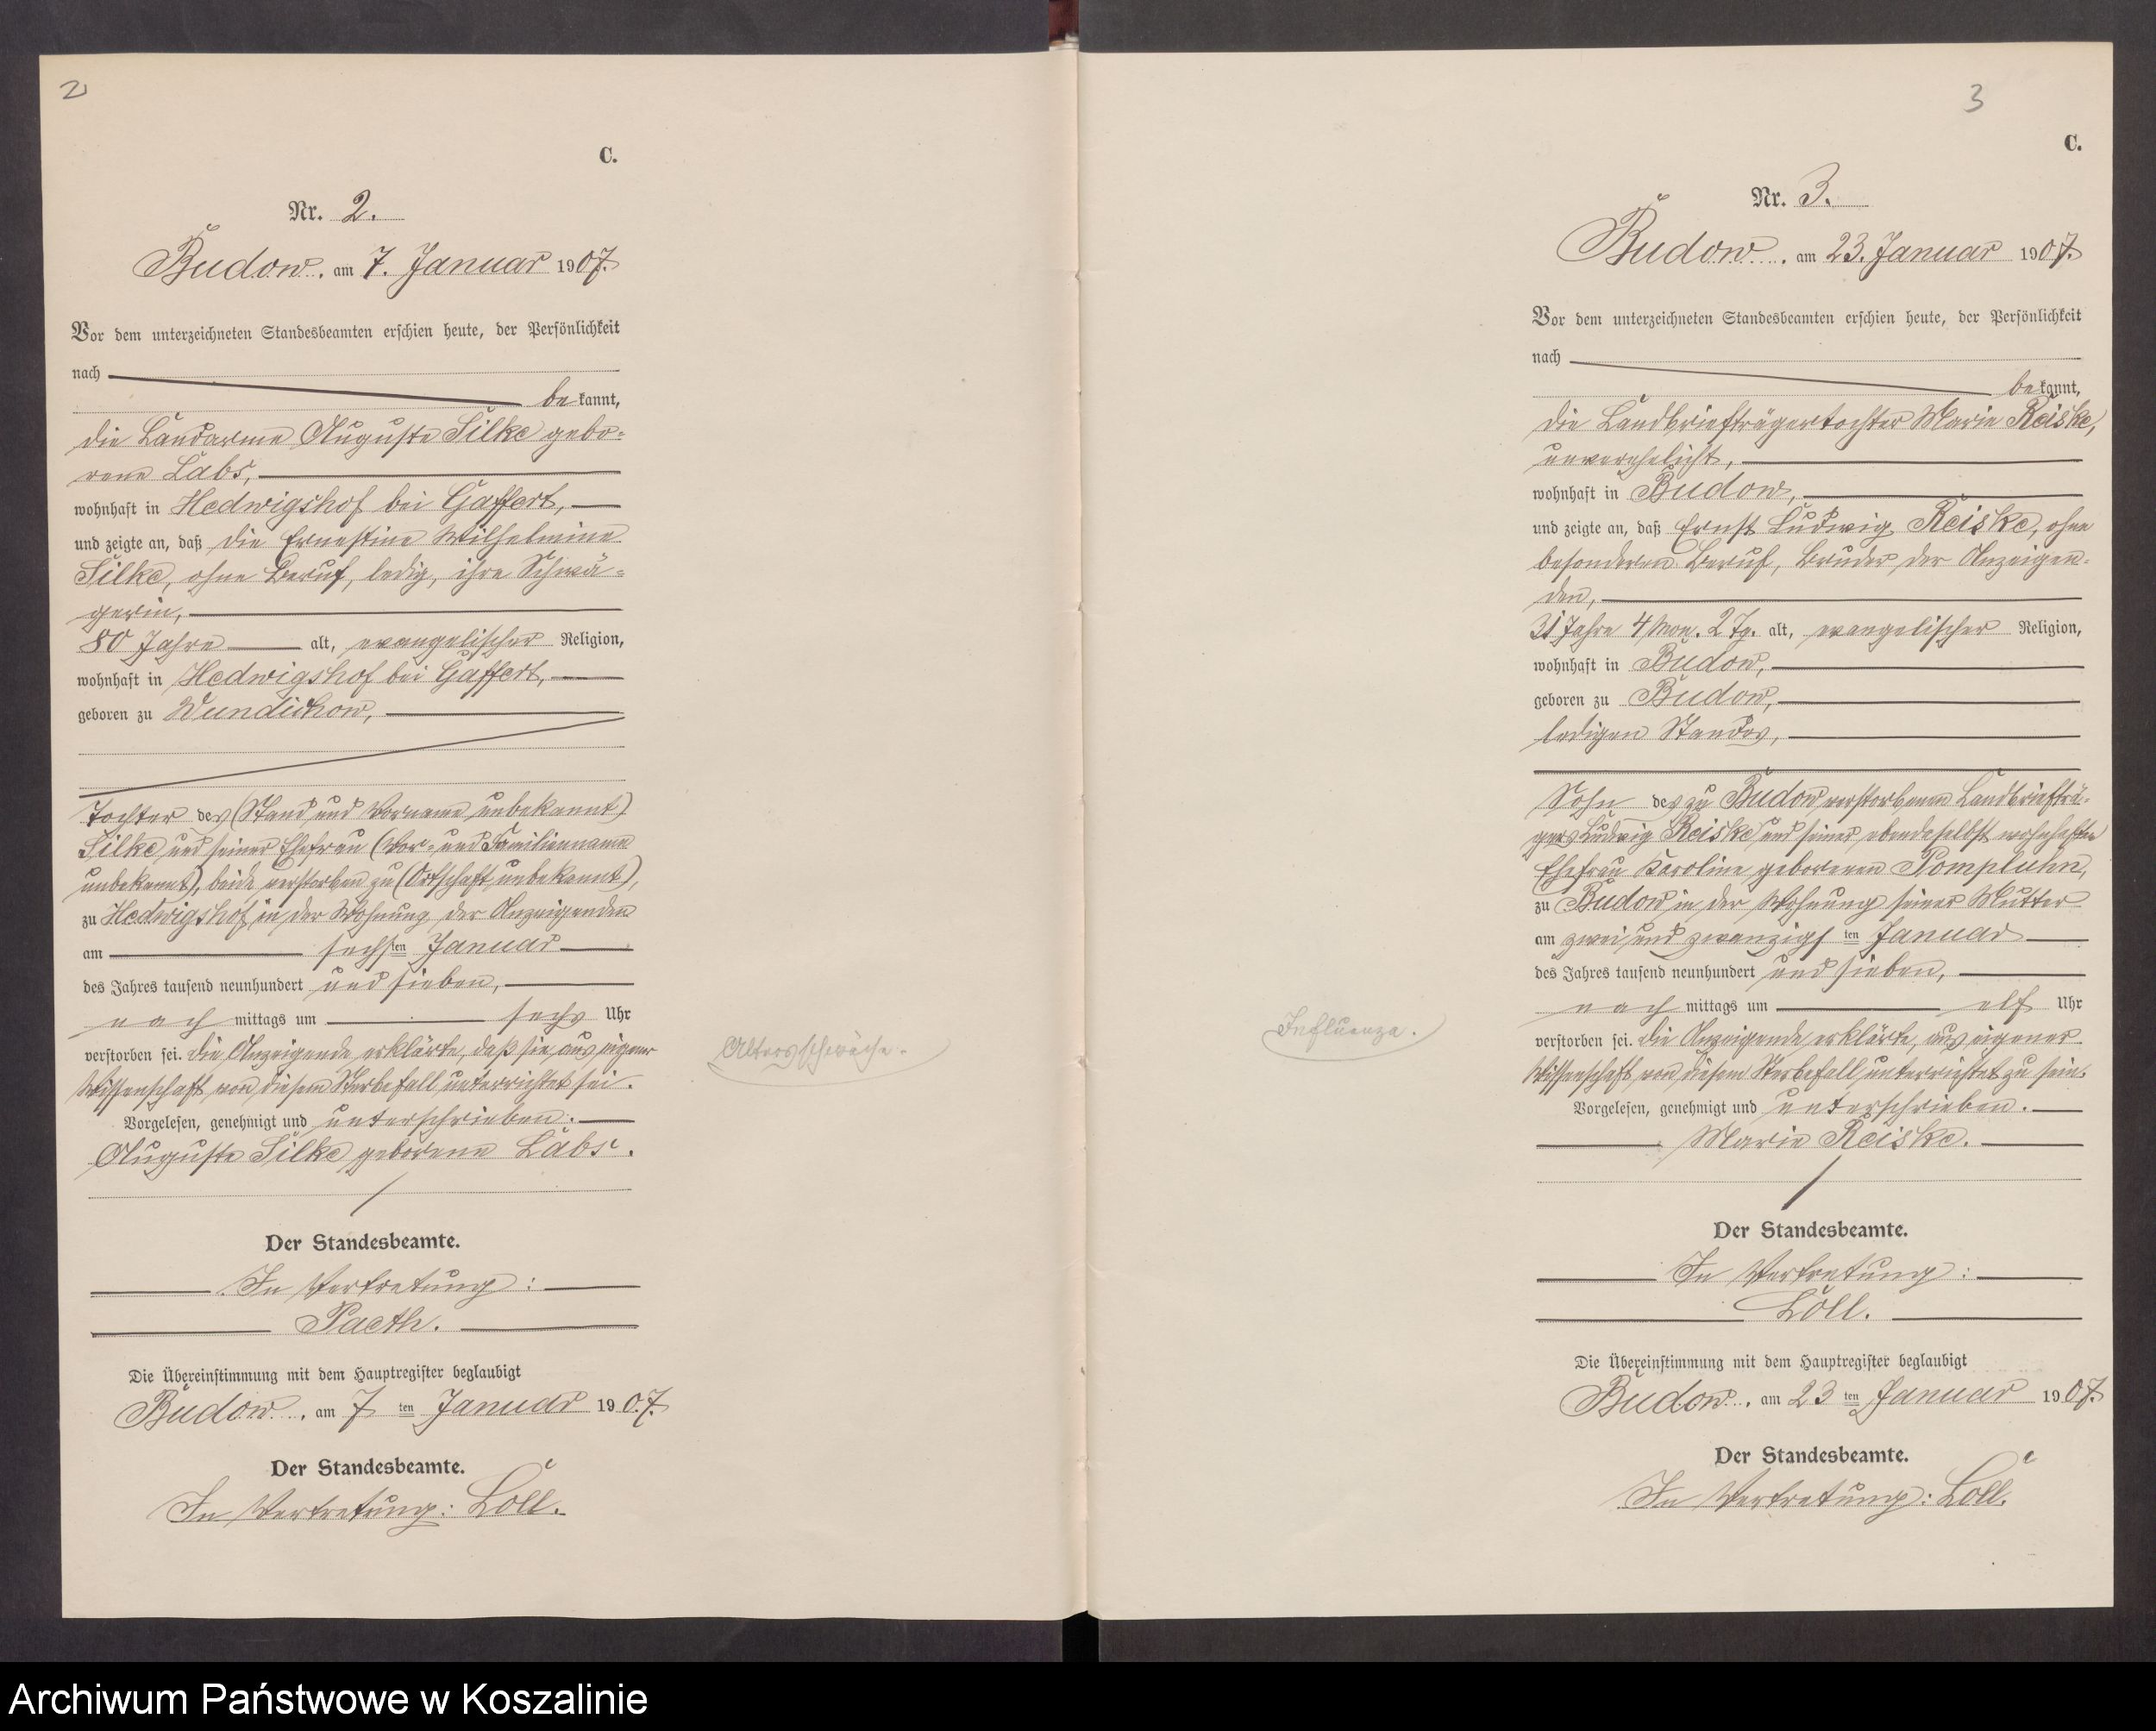 2
C.
Nr. 2.
Budow, am 7. Januar 1907.
Vor dem unterzeichneten Standesbeamten erschien heute, der Persönlichkeit
nach
bekannt,
die Landarme Auguste Silke gebo-
rene Labs,
wohnhaft in Hedwigshof bei Gaffert,
und zeigte an, daß die Ernestine Wilhelmine
Silke, ohne Beruf, ledig, ihre Schwä-
gerin,
80 Jahre alt, evangelischer Religion,
wohnhaft in Hedwigshof bei Gaffert,
geboren zu Wundichow,
Tochter des (Stand und Vorname unbekannt)
Silke und seiner Ehefrau (Vor- und Familienname
unbekannt), beide verstorben zu (Ortschaft unbekannt),
zu Hedwigshof in der Wohnung der Anzeigenden
am sechsten Januar
des Jahres tausend neunhundert und sieben,
nachmittags um sechs Uhr
verstorben sei. Die Anzeigende erklärte, daß sie aus eigener
Wissenschaft von diesem Sterbefall unterrichtet sei.
Vorgelesen, genehmigt und unterschrieben.
Auguste Silke geborene Labs.
Der Standesbeamte.
In Vertretung:
Paeth.
Die Übereinstimmung mit dem Hauptregister beglaubigt
Budow, am 7ten Januar 1907.
Der Standesbeamte.
In Vertretung: Löll.
Altersschwäche.
3
C.
Nr. 3.
Budow, am 23. Januar 1907.
Vor dem unterzeichneten Standesbeamten erschien heute, der Persönlichkeit
nach
bekannt,
die Landbriefträgertochter Marie Reiske,
unverehelicht,
wohnhaft in Budow,
und zeigte an, daß Ernst Ludwig Reiske, ohne
besonderen Beruf, Bruder der Anzeigen-
den,
31 Jahre 4 Mon. 2 Tg. alt, evangelischer Religion,
wohnhaft in Budow,
geboren zu Budow,
ledigen Standes,
Sohn des zu Budow verstorbenen Landbriefträ-
gers Ludwig Reiske und seiner ebendaselbst wohnhaften
Ehefrau Karoline geborenen Pompluhn,
zu Budow in der Wohnung seiner Mutter
am zwei und zwanzigsten Januar
des Jahres tausend neunhundert und sieben,
nachmittags um elf Uhr
verstorben sei. Die Anzeigende erklärte, aus eigener
Wissenschaft von diesem Sterbefall unterrichtet zu sein.
Vorgelesen, genehmigt und unterschrieben.
Marie Reiske.
Der Standesbeamte.
In Vertretung:
Löll.
Die Übereinstimmung mit dem Hauptregister beglaubigt
Budow, am 23ten Januar 1907.
Der Standesbeamte.
In Vertretung: Löll.
Influenza.
Archiwum Państwowe w Koszalinie